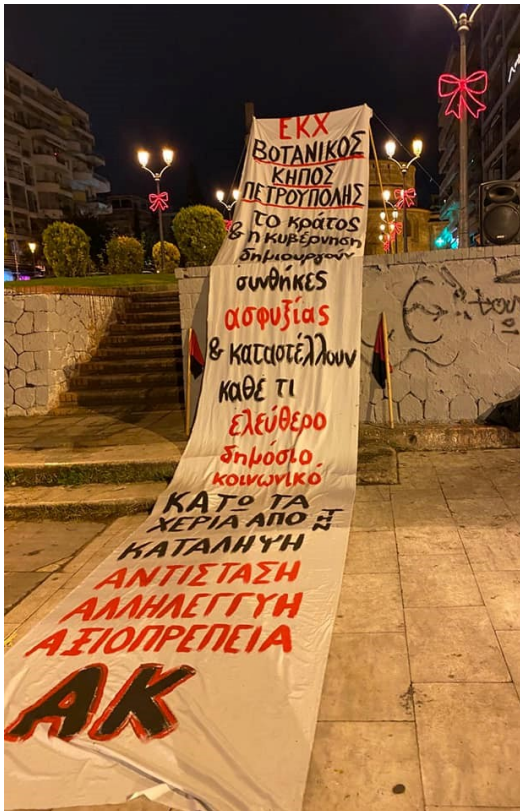 ΕΚΧ
ΒΟΤΑΝΙΚΟΣ
ΚΗΠΟΣ
ΠΕΤΡΟΥΠΟΛΗΣ
το κράτος
& η κυβέρνηση
δημιουργούν
συνθήκες
ασφυξίας
& καταστέλλουν
καθέ τι
ελεύθερο
δημόσιο
κοινωνικό
ΚΑΤΩ ΤΑ
ΧΕΡΙΑ ΑΠΟ ΤΗ
ΚΑΤΑΛΗΨΗ
ΑΝΤΙΣΤΑΣΗ
ΑΛΛΗΛΕΓΓΥΗ
ΑΞΙΟΠΡΕΠΕΙΑ
ΑΚ